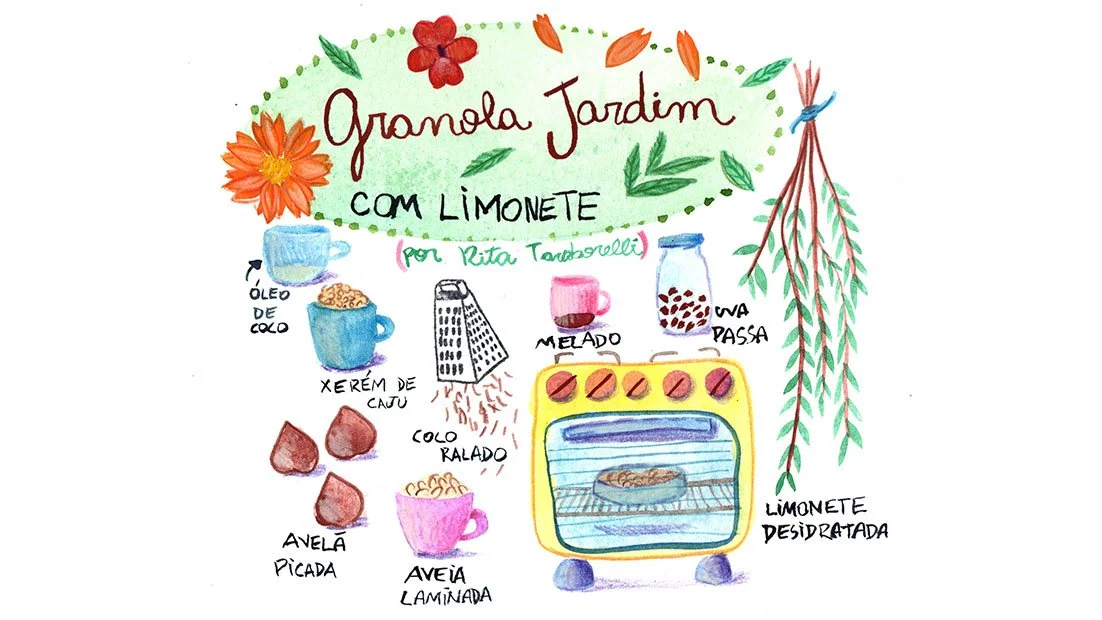 Granola Jardim
COM LIMONETE
(por Rita Taraborelli)
ÓLEO
DE
COCO
XERÉM DE
CAJU
COCO
RALADO
MELADO
UVA
PASSA
AVELÃ
PICADA
AVEIA
LAMINADA
LIMONETE
DESIDRATADA